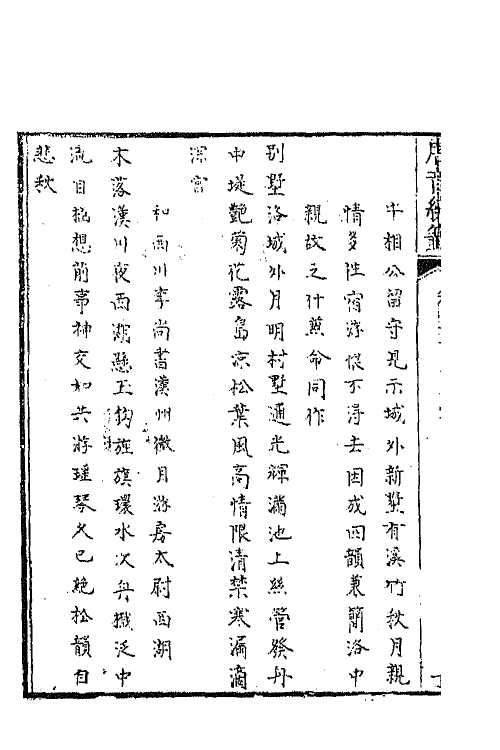 牛相公留守見示城外新墅有溪竹秋月親
情多往宿游恨不得去因成四韻兼簡洛中
親故之什兼命同作
別墅洛城外月明村墅通光輝滿池上絲管發舟
中堤艷菊花露島凉松葉風高情限清禁寒漏滴
深宮
和西川李尚書漢州微月游房太尉西湖
木落漢川夜西湖懸玉鈎旌旗環水次舟檝泛中
流目極想前事神交如共游瑤琴久已絶松韻自
悲秋